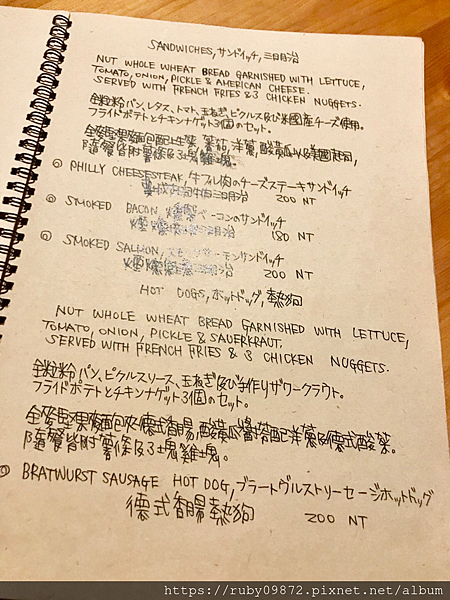 SANDWICHES, サンドイッチ, 三日月治
NUT WHOLE WHEAT BREAD GARNISHED WITH LETTUCE,
TOMATO, ONION, PICKLE & AMERICAN CHEESE.
SERVED WITH FRENCH FRIES & 3 CHICKEN NUGGETS.
全粒粉パン、レタス、トマト、玉ねぎ、ピクルス及び米國産チーズ使用。
フライドポテトとチキンナゲット3個のセット。
全麥堅果麵包配上生菜、蕃茄、洋蔥、酸黃瓜以及美國起司,
隨餐皆附薯條及3塊雞塊。
PHILLY CHEESESTEAK, 牛フル肉のチーズステーキサンドイッチ
200 NT
SMOKED BACON, ベーコンのサンドイッチ
180 NT
SMOKED SALMON, スモークサーモンサンドイッチ
200 NT
HOT DOGS, ホットドッグ, 熱狗
NUT WHOLE WHEAT BREAD GARNISHED WITH LETTUCE,
TOMATO, ONION, PICKLE & SAUERKRAUT.
SERVED WITH FRENCH FRIES & 3 CHICKEN NUGGETS.
全粒粉パン、ピクルスソース、玉ねぎ及び手作りザワークラウト。
フライドポテトとチキンナゲット3個のセット。
全麥堅果麵包夾德式香腸,酸黃瓜醬搭配洋蔥及德式酸菜。
隨餐皆附薯條及3塊雞塊。
BRATWURST SAUSAGE HOT DOG, ブラートヴルストソーセージホットドッグ
德式香腸熱狗 200 NT
https://ruby09872.pixnet.net/album